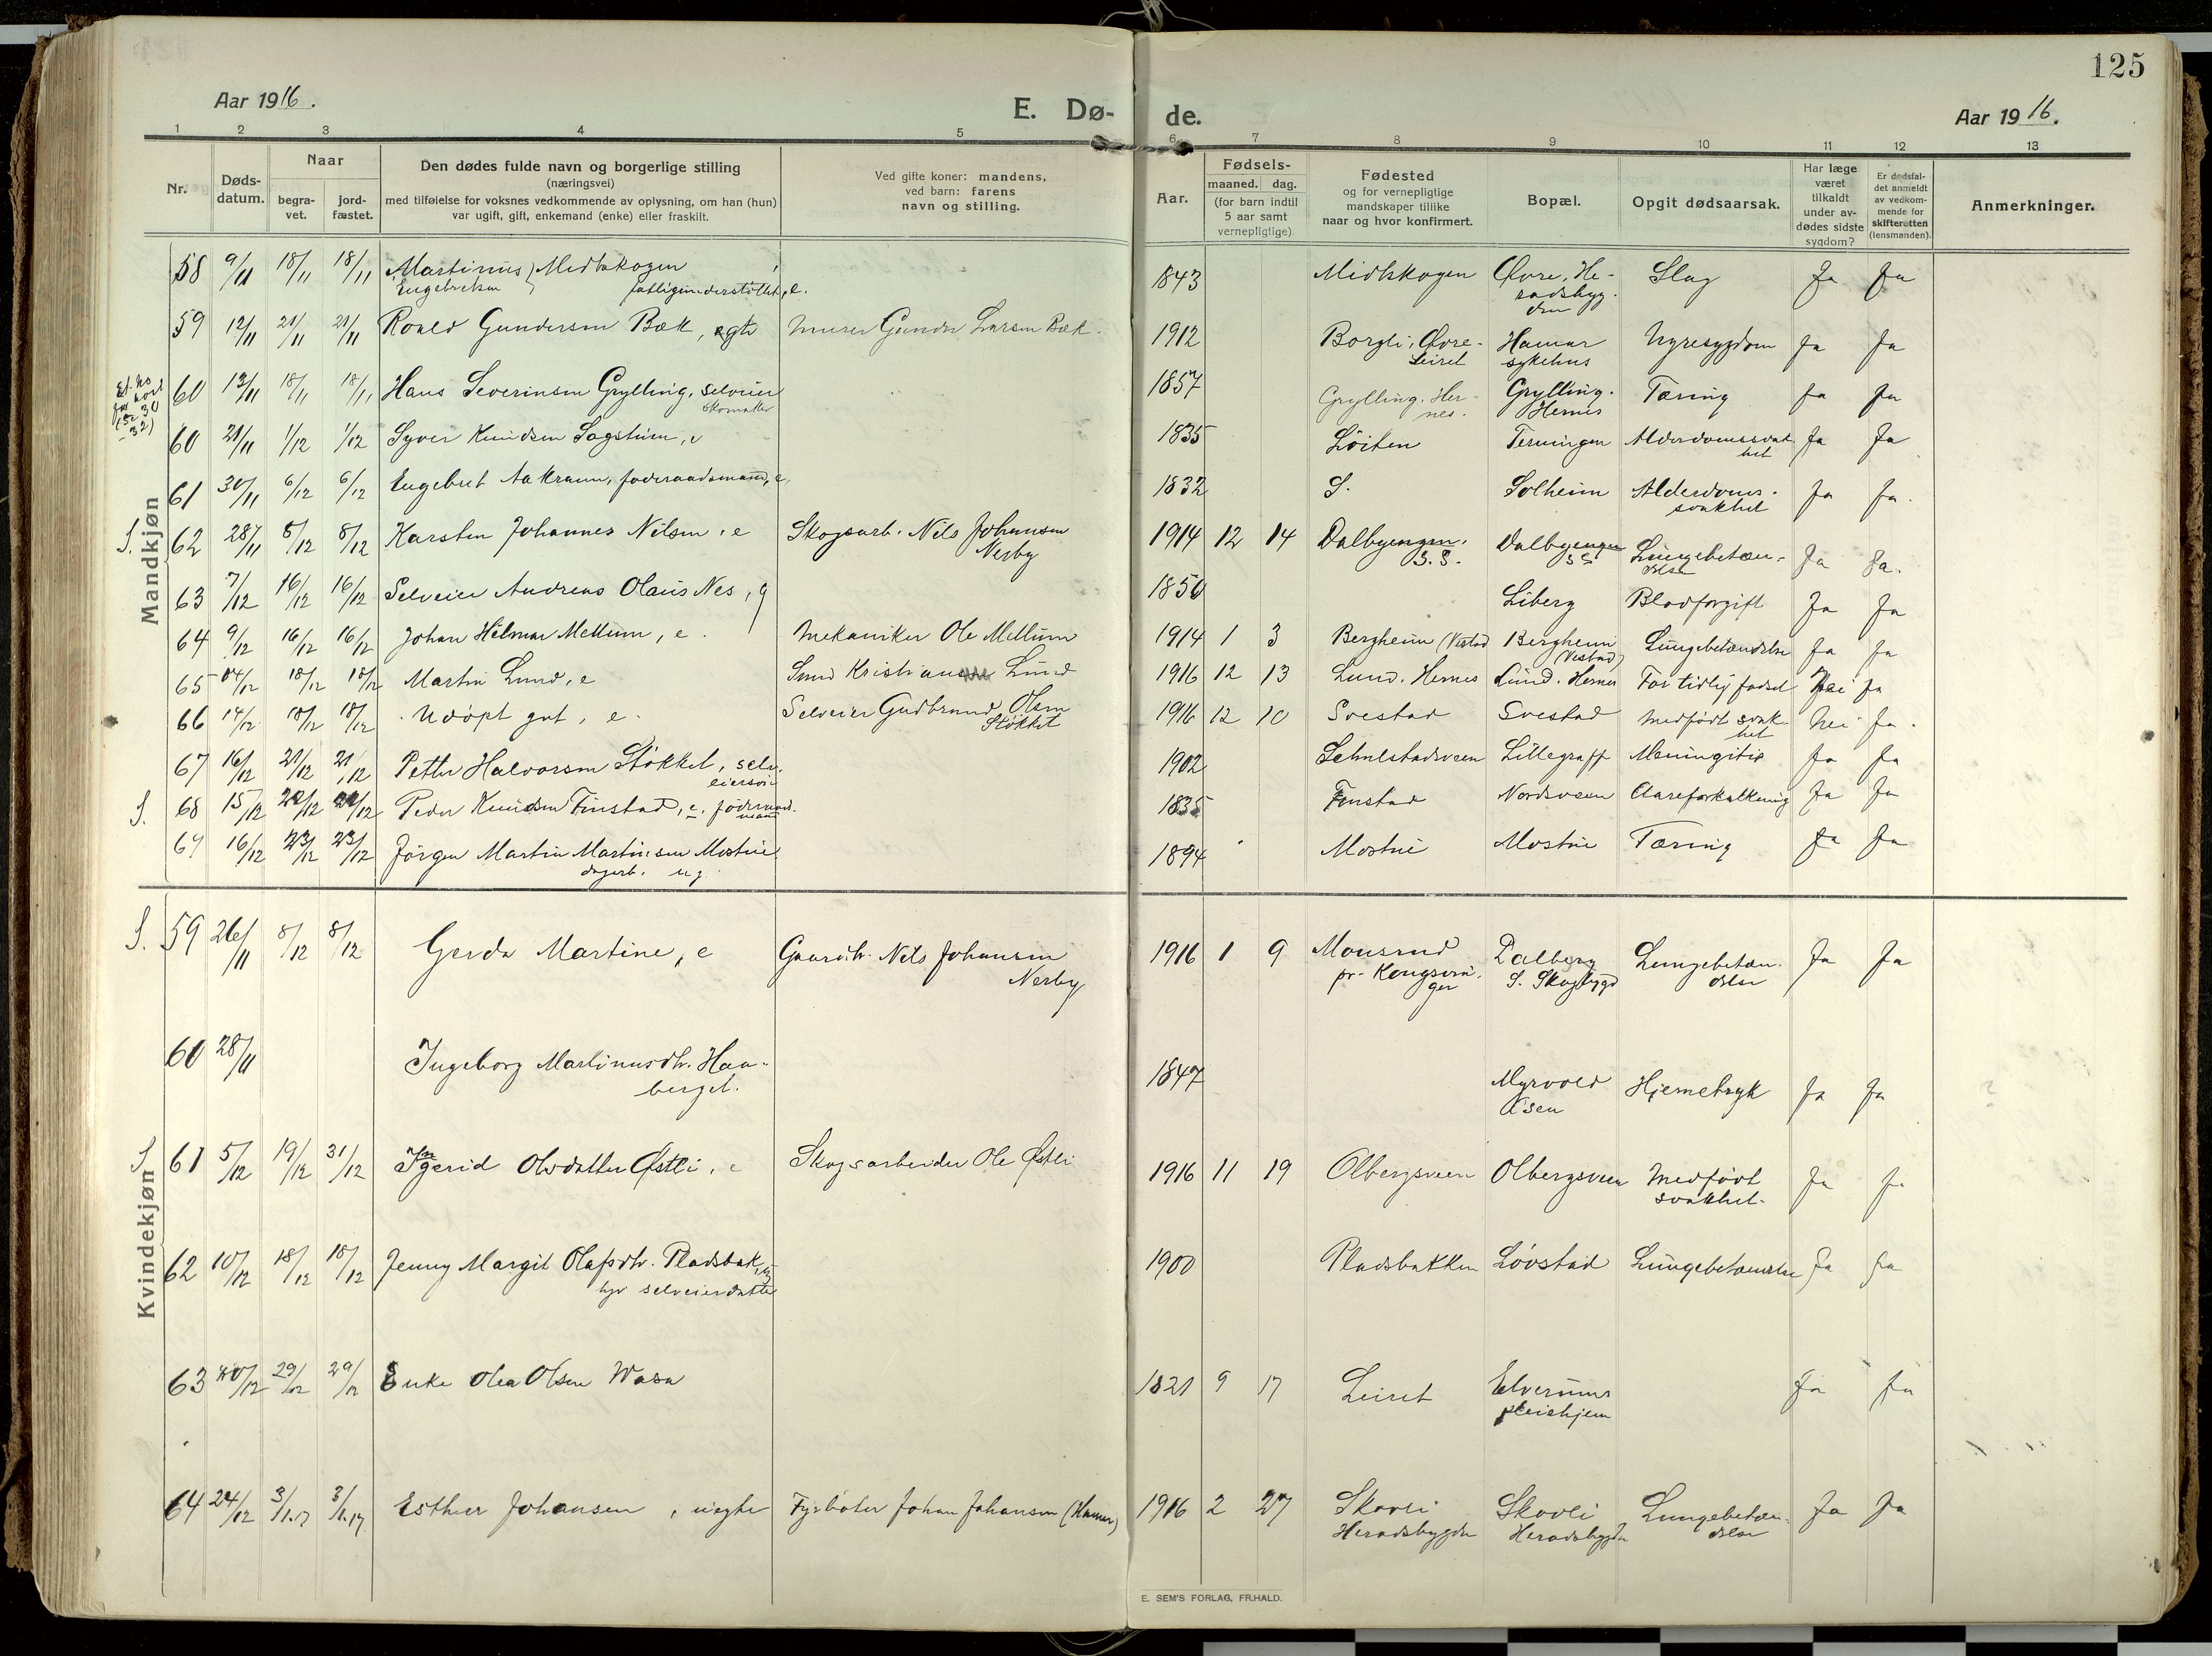 125
Aar 1916.
E. Dø-
de.
Aar 1916.
1 2 3 4 5 6 7 8 9 10 11 12 13
Nr.
Døds-
datum.
Naar
begra-
vet.
jord-
fæstet.
Den dødes fulde navn og borgerlige stilling
(næringsvei)
med tilføielse for voksnes vedkommende av oplysning, om han (hun)
var ugift, gift, enkemand (enke) eller fraskilt.
Ved gifte koner: mandens,
ved barn: farens
navn og stilling.
Aar.
Fødsels-
maaned. dag.
(for barn indtil
5 aar samt
vernepligtige)
Fødested
og for vernepligtige
mandskaper tillike
naar og hvor konfirmert.
Bopæl.
Opgit dødsaarsak.
Har læge
været
tilkaldt
under av-
dødes sidste
sygdom?
Er dødsfal-
det anmeldt
av vedkom-
mende for
skifteretten
(lensmanden).
Anmerkninger.
Mandkjøn
58 9/11 18/11 18/11 Martinus Midtskogen 1843 Midtskogen Øvre, He- Slag Ja Ja
Engebretsen fattigunderstöttet, e. radsbyg-
den
59 12/11 21/11 21/11 Roald Gundersen Bæk, egte murer Gunder Larsen Bæk. 1912 Borgli, Øvre- Hamar Nyresygdom Ja Ja
Leiret sykehus
60 13/11 18/11 18/11 Hans Severinsen Grylling, selveier 1857 Grylling. Her- Grylling. Tæring Ja Ja
skomaker nes. Hernes
60 21/11 1/12 1/12 Syver Knudsen Sagstuen, e 1835 Löiten Terningen Alderdomssvak- Ja Ja
het
61 30/11 6/12 6/12 Engebret Aakrann, foderaadsmand, e, 1832 S. Solheim Alderdoms- Ja Ja.
svakhet
S. 62 28/11 8/12 8/12 Karsten Johannes Nilsen, e Skogsarb. Nils Johansen 1914 12 14 Dalbyengen. Dalbyengen Lungebetæn- Ja Ja.
Nesby S.S. SS delse
63 7/12 16/12 16/12 Selveier Andreas Olaus Nes, g 1850 Liberg Blodforgift. Ja Ja
64 9/12 16/12 16/12 Johan Hilmar Mellum, e. Mekaniker Ole Mellum 1914 1 3 Bergheim (Vestad Bergheim Lungebetændelse Ja Ja
(Vestad)
65 14/12 18/12 18/12 Martin Lund, e Smed Kristian Lund 1916 12 13 Lund. Hernes Lund. Hernes For tidlig fødsel Nei Ja
66 14/12 18/12 18/12 Udöpt gut, e. Selveier Gudbrand Olsen 1916 12 10 Svestad Svestad Medfödt svak- Nei Ja.
Stökket het
67 16/12 21/12 21/12 Petter Halvorsen Stökket, selv- 1902 Schulstadsveen Lillegraff Meningitis Ja Ja
eiersön
S. 68 15/12 22/12 22/12 Peder Knudsen Finstad, e. föderaad- 1835 Finstad Nordsveen Aareforkalkning Ja Ja
mand
69 16/12 23/12 23/12 Jörgen Martin Martinsen Mostue 1894 Mostue Mostue Tæring Ja Ja
dagarb. ug.
Kvindekjøn
S. 59 26/11 8/12 8/12 Gerda Martine, e Gaardbr. Nils Johansen 1916 1 9 Monsrud Dalberg Lungebetæn- Ja Ja
Nesby pr. Kongsvin- S. Skogbygd delse
ger
60 28/11 Ingeborg Martinusdtr. Haa- 1847 Myrvold Hjernetryk Ja Ja
berget. Åsen
S 61 5/12 19/12 31/12 Ingerid Olsdatter Østli, e Skogsarbeider Ole Østli 1916 11 19 Olbergsveen Olbergsveen Medfödt Ja Ja
svakhet.
62 10/12 18/12 18/12 Jenny Margit Olafsdtr. Pladsbak, 1900 Pladsbakken Lövstad Lungebetændelse Ja Ja
selveierdatter
63 20/12 29/12 29/12 Enke Olea Olsen Wasa 1821 9 17 Leiret Elverums Ja Ja
pleiehjem
64 24/12 3/1.17 3/1.17 Esther Johansen, uegte Fyrböter Johan Johansen (Hamar) 1916 2 27 Skovli Skovli Lungebetæn- Ja Ja
Heradsbygden Heradsbygden delse
E. SEM'S FORLAG, FR.HALD.